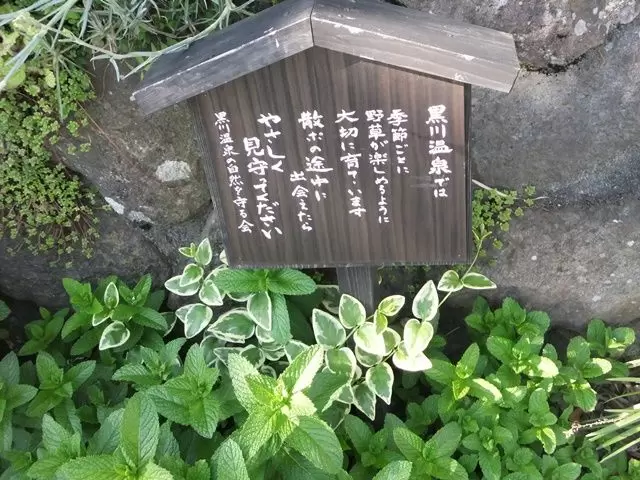 黒川温泉では
季節ごとに
野草が楽しめるように
大切に育ています
散歩の途中に
出会えたら
やさしく
見守ってください
黒川温泉の自然を守る会